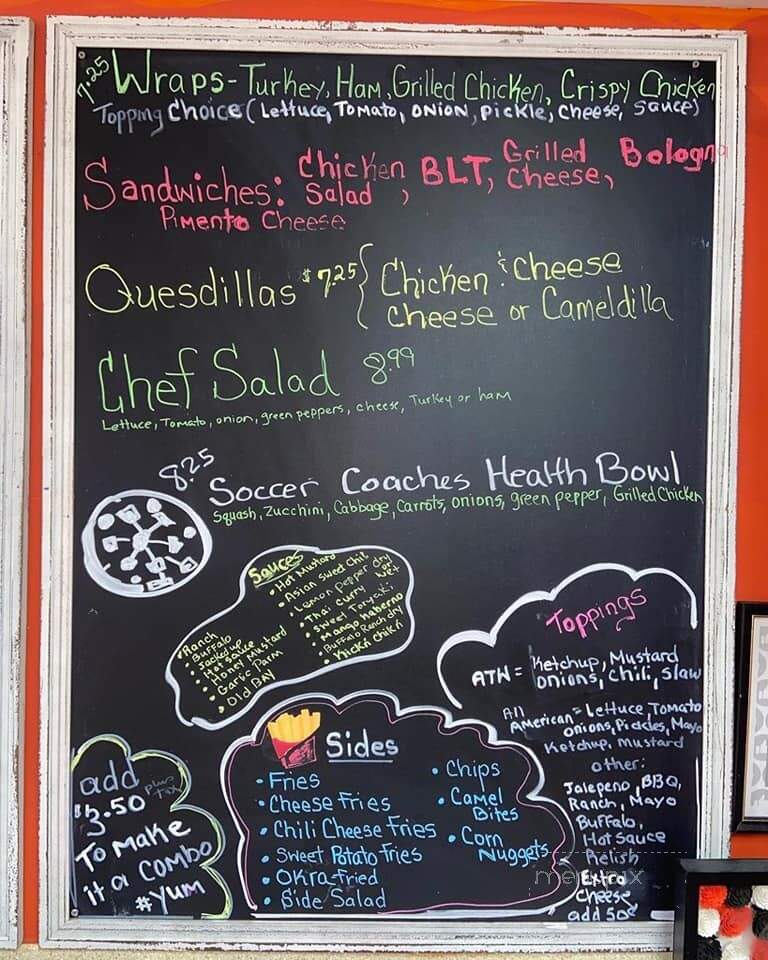 7.25 Wraps - Turkey, Ham, Grilled Chicken, Crispy Chicken
Topping Choice (Lettuce, Tomato, ONION, Pickle, Cheese, Sauce)
Sandwiches: Chicken Salad, BLT, Grilled Cheese, Bologna
Pimento Cheese
Quesdillas $7.25 { Chicken & Cheese
Cheese or Cameldilla
Chef Salad 8.99
Lettuce, Tomato, onion, green peppers, cheese, Turkey or ham
8.25 Soccer Coaches Health Bowl
Squash, Zucchini, Cabbage, Carrots, onions, green pepper, Grilled Chicken
Sauces
• Ranch
• Buffalo
• Jacked up
• Hot Sauce
• Honey Mustard
• Garlic Parm
• Old BAY
• Hot Mustard
• Asian Sweet Chili
• Lemon Pepper dry or wet
• Thai Curry
• Sweet Teryaki
• Mango Haberno
• Buffalo Ranch dry
• Kickn Chikn
Toppings
ATW = Ketchup, Mustard
onions, chili, slaw
All American = Lettuce, Tomato
onions, Pickles, Mayo
Ketchup, Mustard
other:
Jalepeno, BBQ,
Ranch, Mayo
Buffalo,
Hot Sauce
Relish
Extra
Cheese
add 50¢
Sides
• Fries
• Cheese Fries
• Chili Cheese Fries
• Sweet Potato Fries
• OKra-Fried
• Side Salad
• Chips
• Camel
Bites
• Corn
Nuggets
add
$3.50 plus tax
To Make
it a Combo
#yum